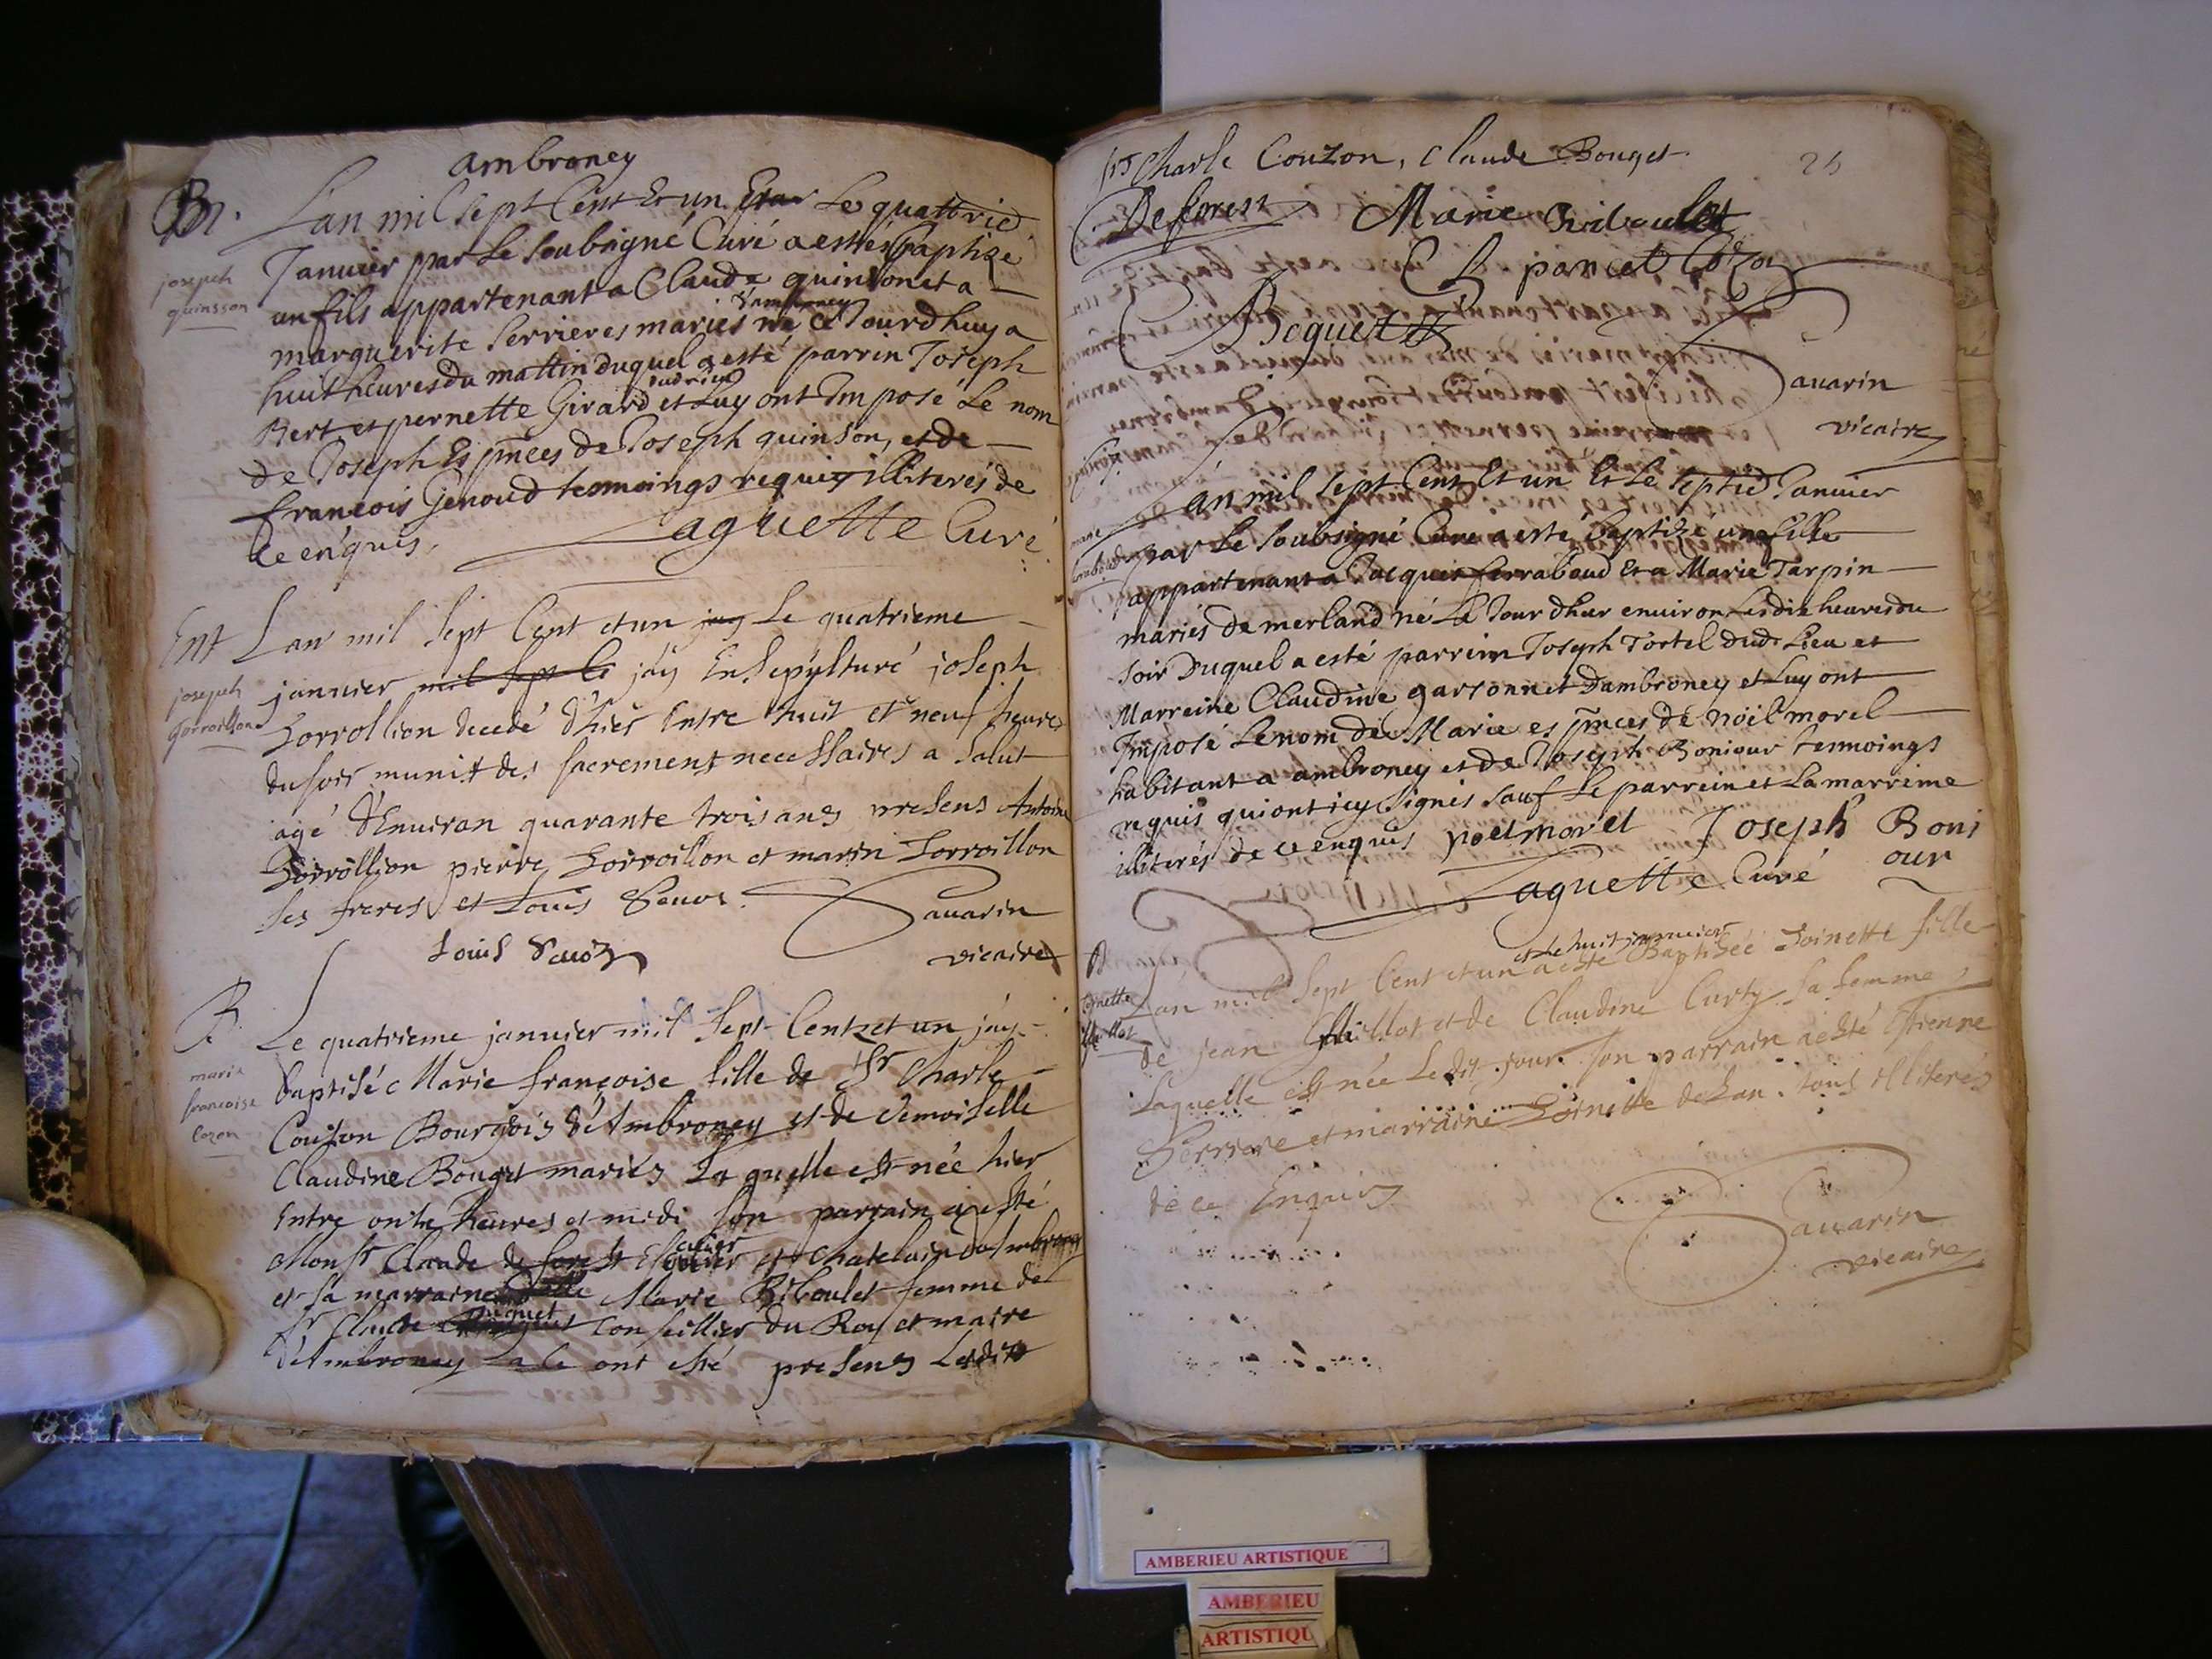 ambroney
B.
Lan mil sept Cent Et un Le quattrie
Januier par Le Soubsigné Curé a esté Baptizé
joseph
quinsson
un fils appartenant a Claude quinson et a
marguerite Serrieres mariés dambroney né ce Jourdhuy a
huit heures du mattin duquel a esté parrin Joseph
Bert et pernette Girard dudit lieu et Luy ont Imposé Le nom
de Joseph Es pnces de Joseph quinson, et de
francois Genoud tesmoings requis illiterés de
ce enquis.
Laguette Curé
Ent
Lan mil Sept Cent et un Le quatrieme
joseph
Gorroillon
januier mil sept Ce jay Ensepulturé joseph
Lorrollion decedé d'hier Entre huit et neuf heures
du soir munit des sacrement necessaires a Salut
agé d'Enuiron quarante trois ans presens Antoine
Lorrollion pierre Lorroillon et marin Lorroillon
ses freres et Louis
Sauarin
Louis
vicaire
B
Le quatrieme januier mil Sept Centz et un jay
marie
francoise
cozon
baptisée Marie françoise fille de Sr Charle
Couson Bourgois d'Ambroney et de demoiselle
Claudine Bouget mariés La quelle est née hier
Entre onze heures et midi son parrain a esté
Monsr Claude de forest Escuier et Chatelain d'Ambroney
et sa marraine Marie Riboulet femme de
Sr Claude Buquet Conseillier du Roy et maire
d'Ambroney a Ce ont esté presens Lesdits
25
Srs Charle Couzon, Claude Bouget
Deforest Marie Riboulet
C B parcet Cozon
Bequet
Sauarin
vicaire
B.
Lan mil Sept Cent Et un Et Le Septie Januier
marie
ferraboud
par Le Soubsigné Curé a esté Baptizé une fille
appartenant a Jacques ferraboud Et a Marie Tarpin
mariés de merland né Le Jourdhier enuiron Les dix heures du
soir Duquel a esté parrein Joseph Tortel dud Lieu et
Marreine Claudine garsonnet Dambroney et Luy ont
Imposé Le nom de Marie es pnces de noël morel
habitant a ambroney et de Joseph Boniour tesmoings
requis qui ont icy signés sauf Le parrein et La marreine
illiterés de ce enquis noel morel Joseph Boni
our
Laguette Curé
B
et Le huit januier
Toinette
Lan mil Sept Cent et un a esté Baptisée Toinette fille
de jean et de Claudine Curty sa femme
Laquelle est née Ledit jour son parrain a esté Estienne
Serriere et marraine Toinette deLan. tous illiterés
de ce Enquis
Sauarin
vicaire
AMBERIEU ARTISTIQUE
AMBERIEU
ARTISTIQU